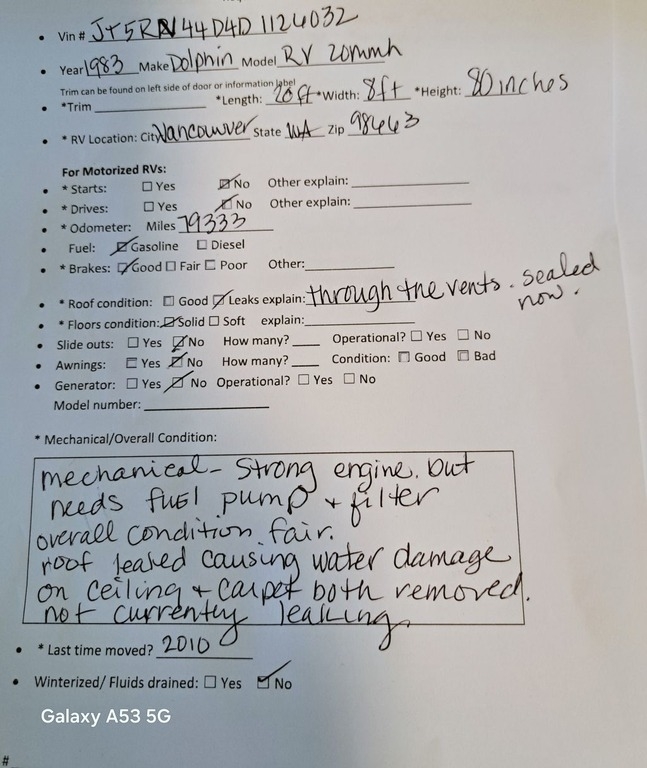 • Vin # JT5RN44D4D1124032
• Year 1983 Make Dolphin Model RV 20mmh
Trim can be found on left side of door or information label
• *Trim ________ *Length: 20 ft *Width: 8ft *Height: 80 inches
• * RV Location: City Vancouver State WA Zip 98663
For Motorized RVs:
• * Starts: ☐ Yes ☑ No Other explain: ________
• * Drives: ☐ Yes ☑ No Other explain: ________
• * Odometer: Miles 79333
• Fuel: ☑ Gasoline ☐ Diesel
• * Brakes: ☑ Good ☐ Fair ☐ Poor Other: ________
• * Roof condition: ☐ Good ☑ Leaks explain: through the vents. sealed now.
• * Floors condition: ☑ Solid ☐ Soft explain: ________
• Slide outs: ☐ Yes ☑ No How many? ____ Operational? ☐ Yes ☐ No
• Awnings: ☐ Yes ☑ No How many? ____ Condition: ☐ Good ☐ Bad
• Generator: ☐ Yes ☑ No Operational? ☐ Yes ☐ No
Model number: ________
* Mechanical/Overall Condition:
mechanical - Strong engine. but
needs fuel pump + filter
overall condition fair.
roof leaked causing water damage
on ceiling + carpet both removed.
not currently leaking.
• * Last time moved? 2010
• Winterized/ Fluids drained: ☐ Yes ☑ No
Galaxy A53 5G
#